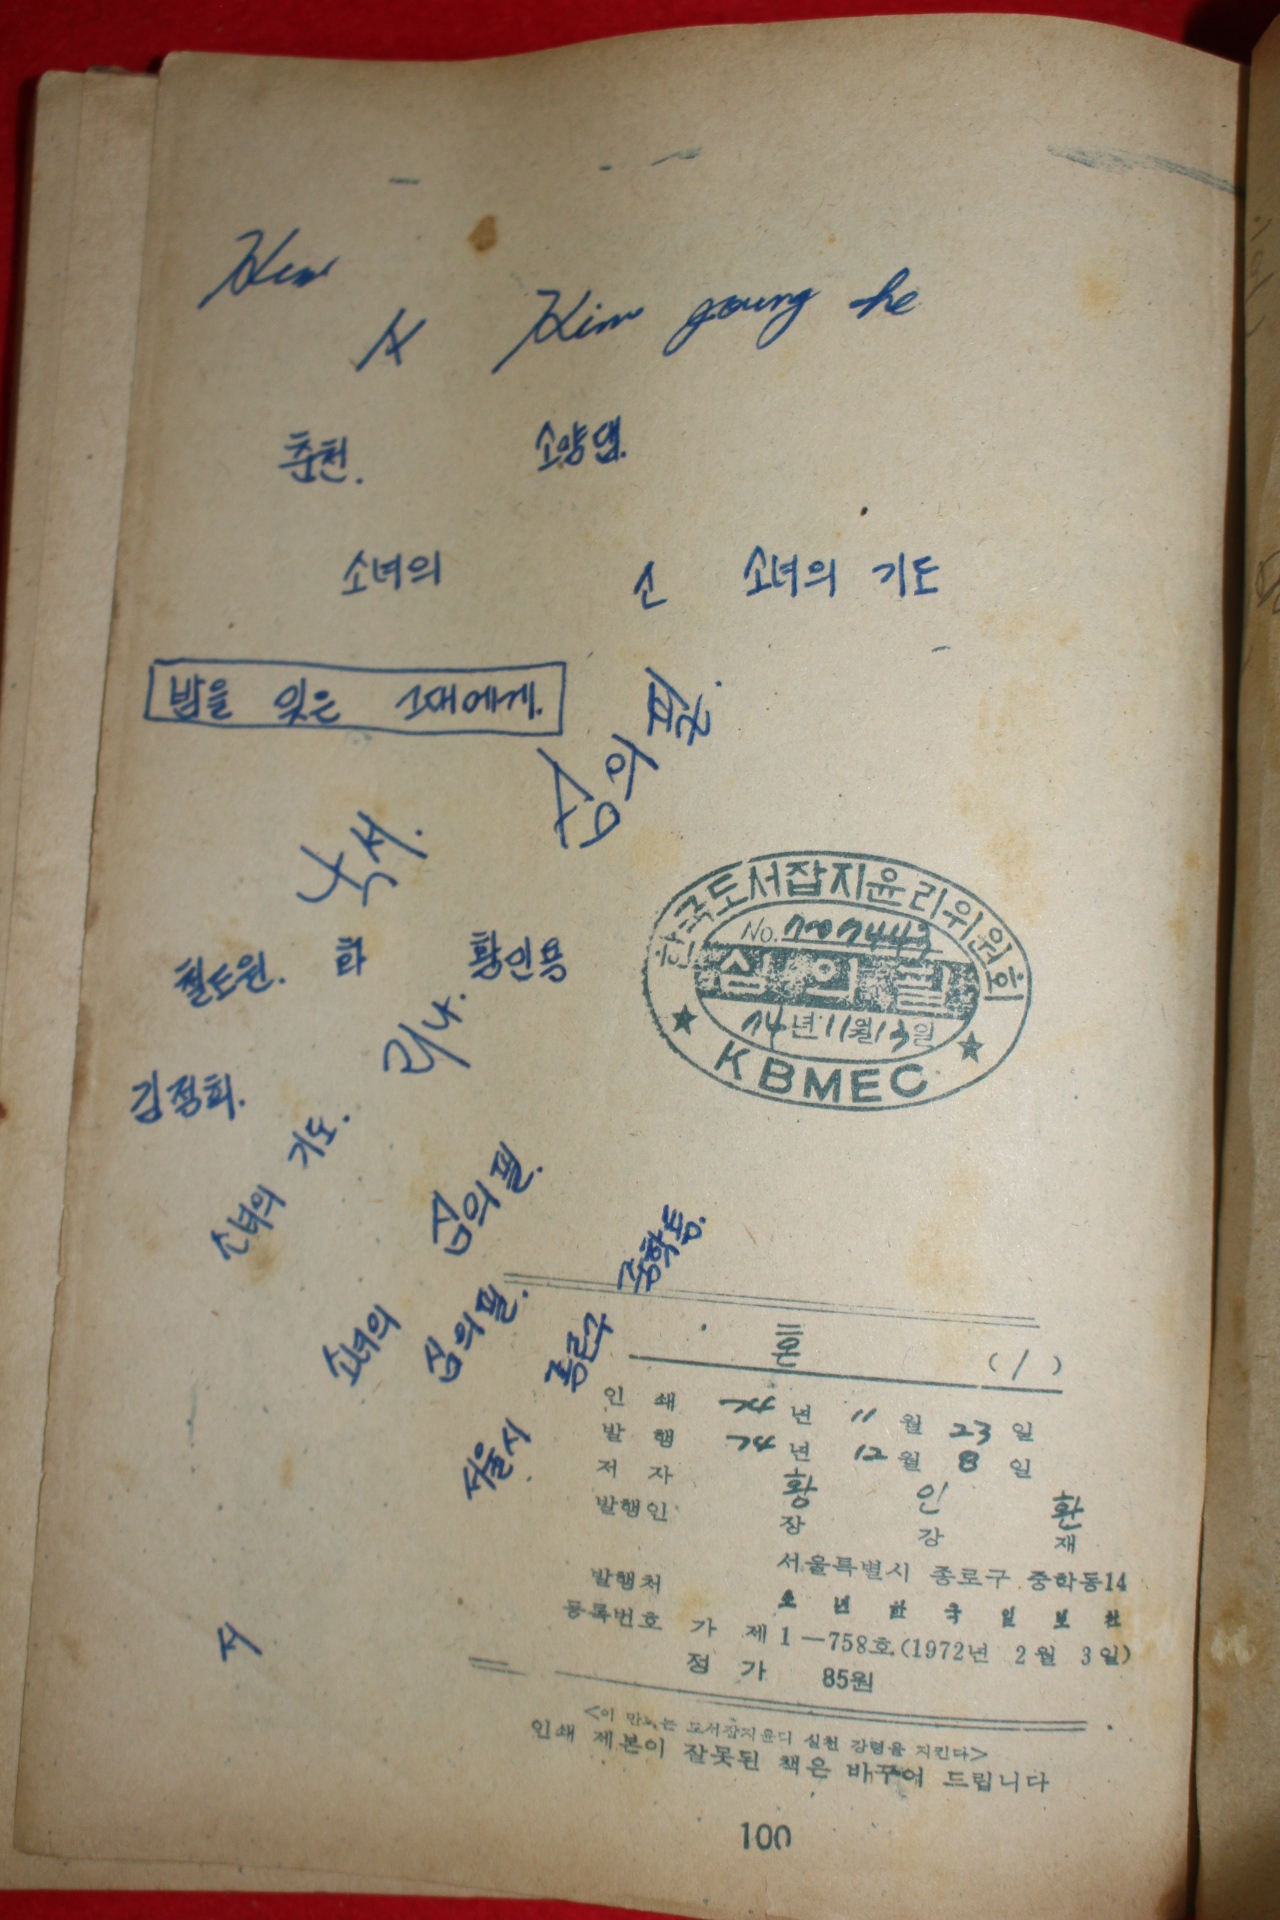 Kim
Kim young he
춘천. 소양댐.
소녀의 소녀의 기도
밤을 잊은 그대에게.
심의필.
낙서.
철도원. 화 황인용
리나.
김정희.
소녀의 기도.
심의필.
소녀의 심의필.
서울시 종로구 중학동.
서
한국도서잡지윤리위원회
No.
심의필
74년 11월 13일
★ KBMEC ★
혼 (1)
인쇄 74년 11월 23일
발행 74년 12월 8일
저자 황인환
발행인 장강재
서울특별시 종로구 중학동14
발행처 소년한국일보社
등록번호 가 제1—758호(1972년 2월 3일)
정가 85원
<이 만화는 도서잡지윤리 실천 강령을 지킨다>
인쇄 제본이 잘못된 책은 바꾸어 드립니다
100